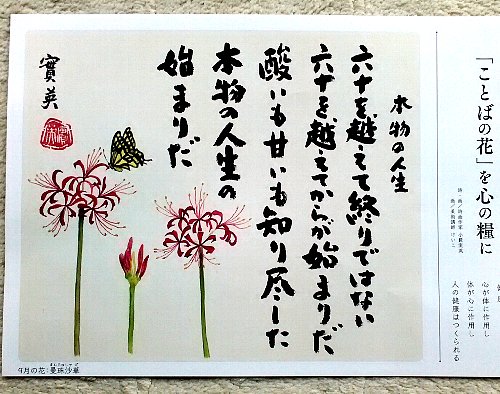 「ことばの花」を心の糧に
心が体に作用し
体が心に作用し
人の健康はつくられる
本物の人生
六十を越えて終りではない
六十を越えてからが始まりだ
酸いも甘いも知り尽した
本物の人生の
始まりだ
寳英
9月の花:曼珠沙華